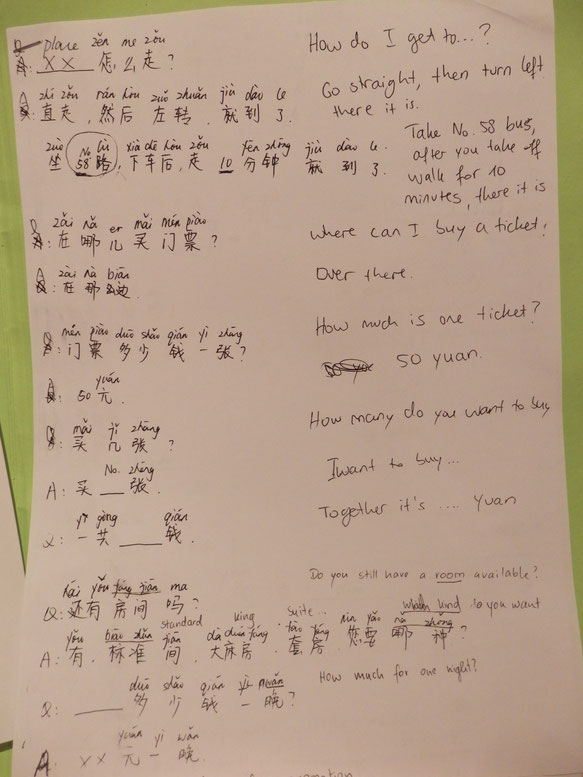 place zěn me zǒu
How do I get to...?
Q: XX 怎么走？
zhí zǒu, rán hòu zuǒ zhuǎn jiù dào le
Go straight, then turn left
A: 直走，然后左转，就到了.
there it is.
zuò No. lù xià chē hòu zǒu fēn zhōng jiù dào le
Take No. 58 bus,
坐 58 路，下车后，走 10 分钟 就到了.
after you take off
walk for 10
minutes, there it is
zài nǎ er mǎi mén piào
where can I buy a ticket?
Q: 在哪儿买门票？
zài nà biān
Over there.
A: 在那边.
mén piào duō shǎo qián yì zhāng
How much is one ticket?
Q: 门票多少钱一张？
yuán
50 yuan.
A: 50 元.
mǎi jǐ zhāng
How many do you want to buy
Q: 买几张？
No. zhāng
I want to buy...
A: 买 __ 张.
yí gòng qián
Together it's .... yuan
Q: 一共 ____ 钱.
Do you still have a room available?
hái yǒu fáng jiān ma
Q: 还有房间吗？
standard king suite... which kind do you want
yǒu biāo zhǔn jiān dà chuáng fáng tào fáng nín yào nǎ zhǒng
A: 有. 标准间. 大床房. 套房. 您要哪种？
How much for one night?
duō shǎo qián yì wǎn
Q: ____ 多少钱一晚？
yuán yì wǎn
A: XX 元一晚.